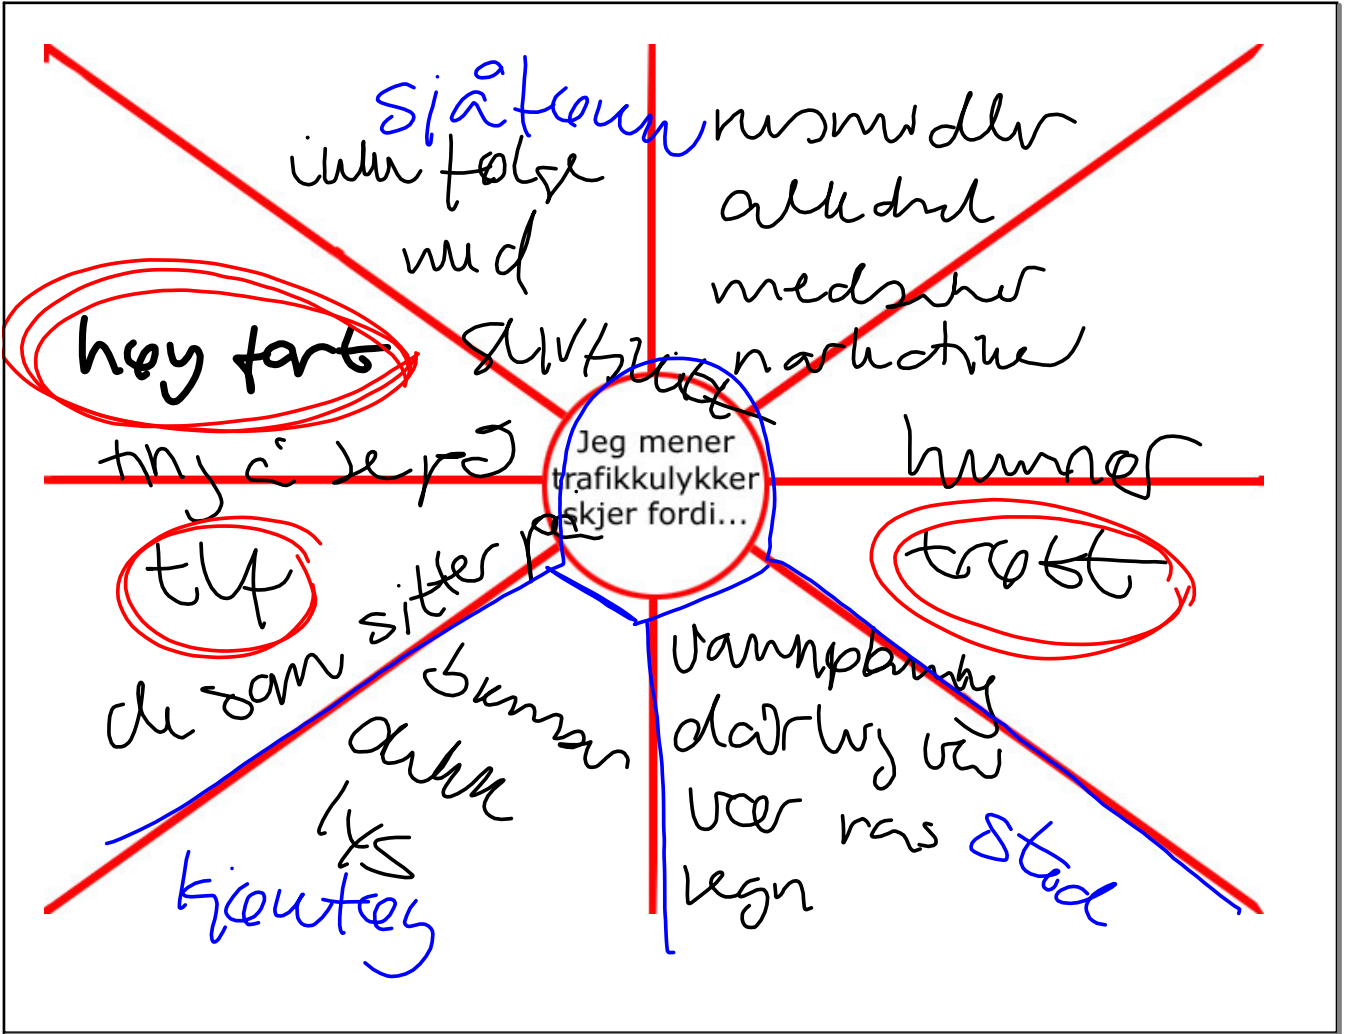 sjåføren
ikke følge
med
rusmidler
alkohol
medsiner
narkotika
høy fart
ting å se på
tlf
de som sitter på
Jeg mener
trafikkulykker
skjer fordi...
humør
trøtt
bremser
dekk
lys
kjøretøy
vannplaning
dårlig vei
vær ras
regn
sted